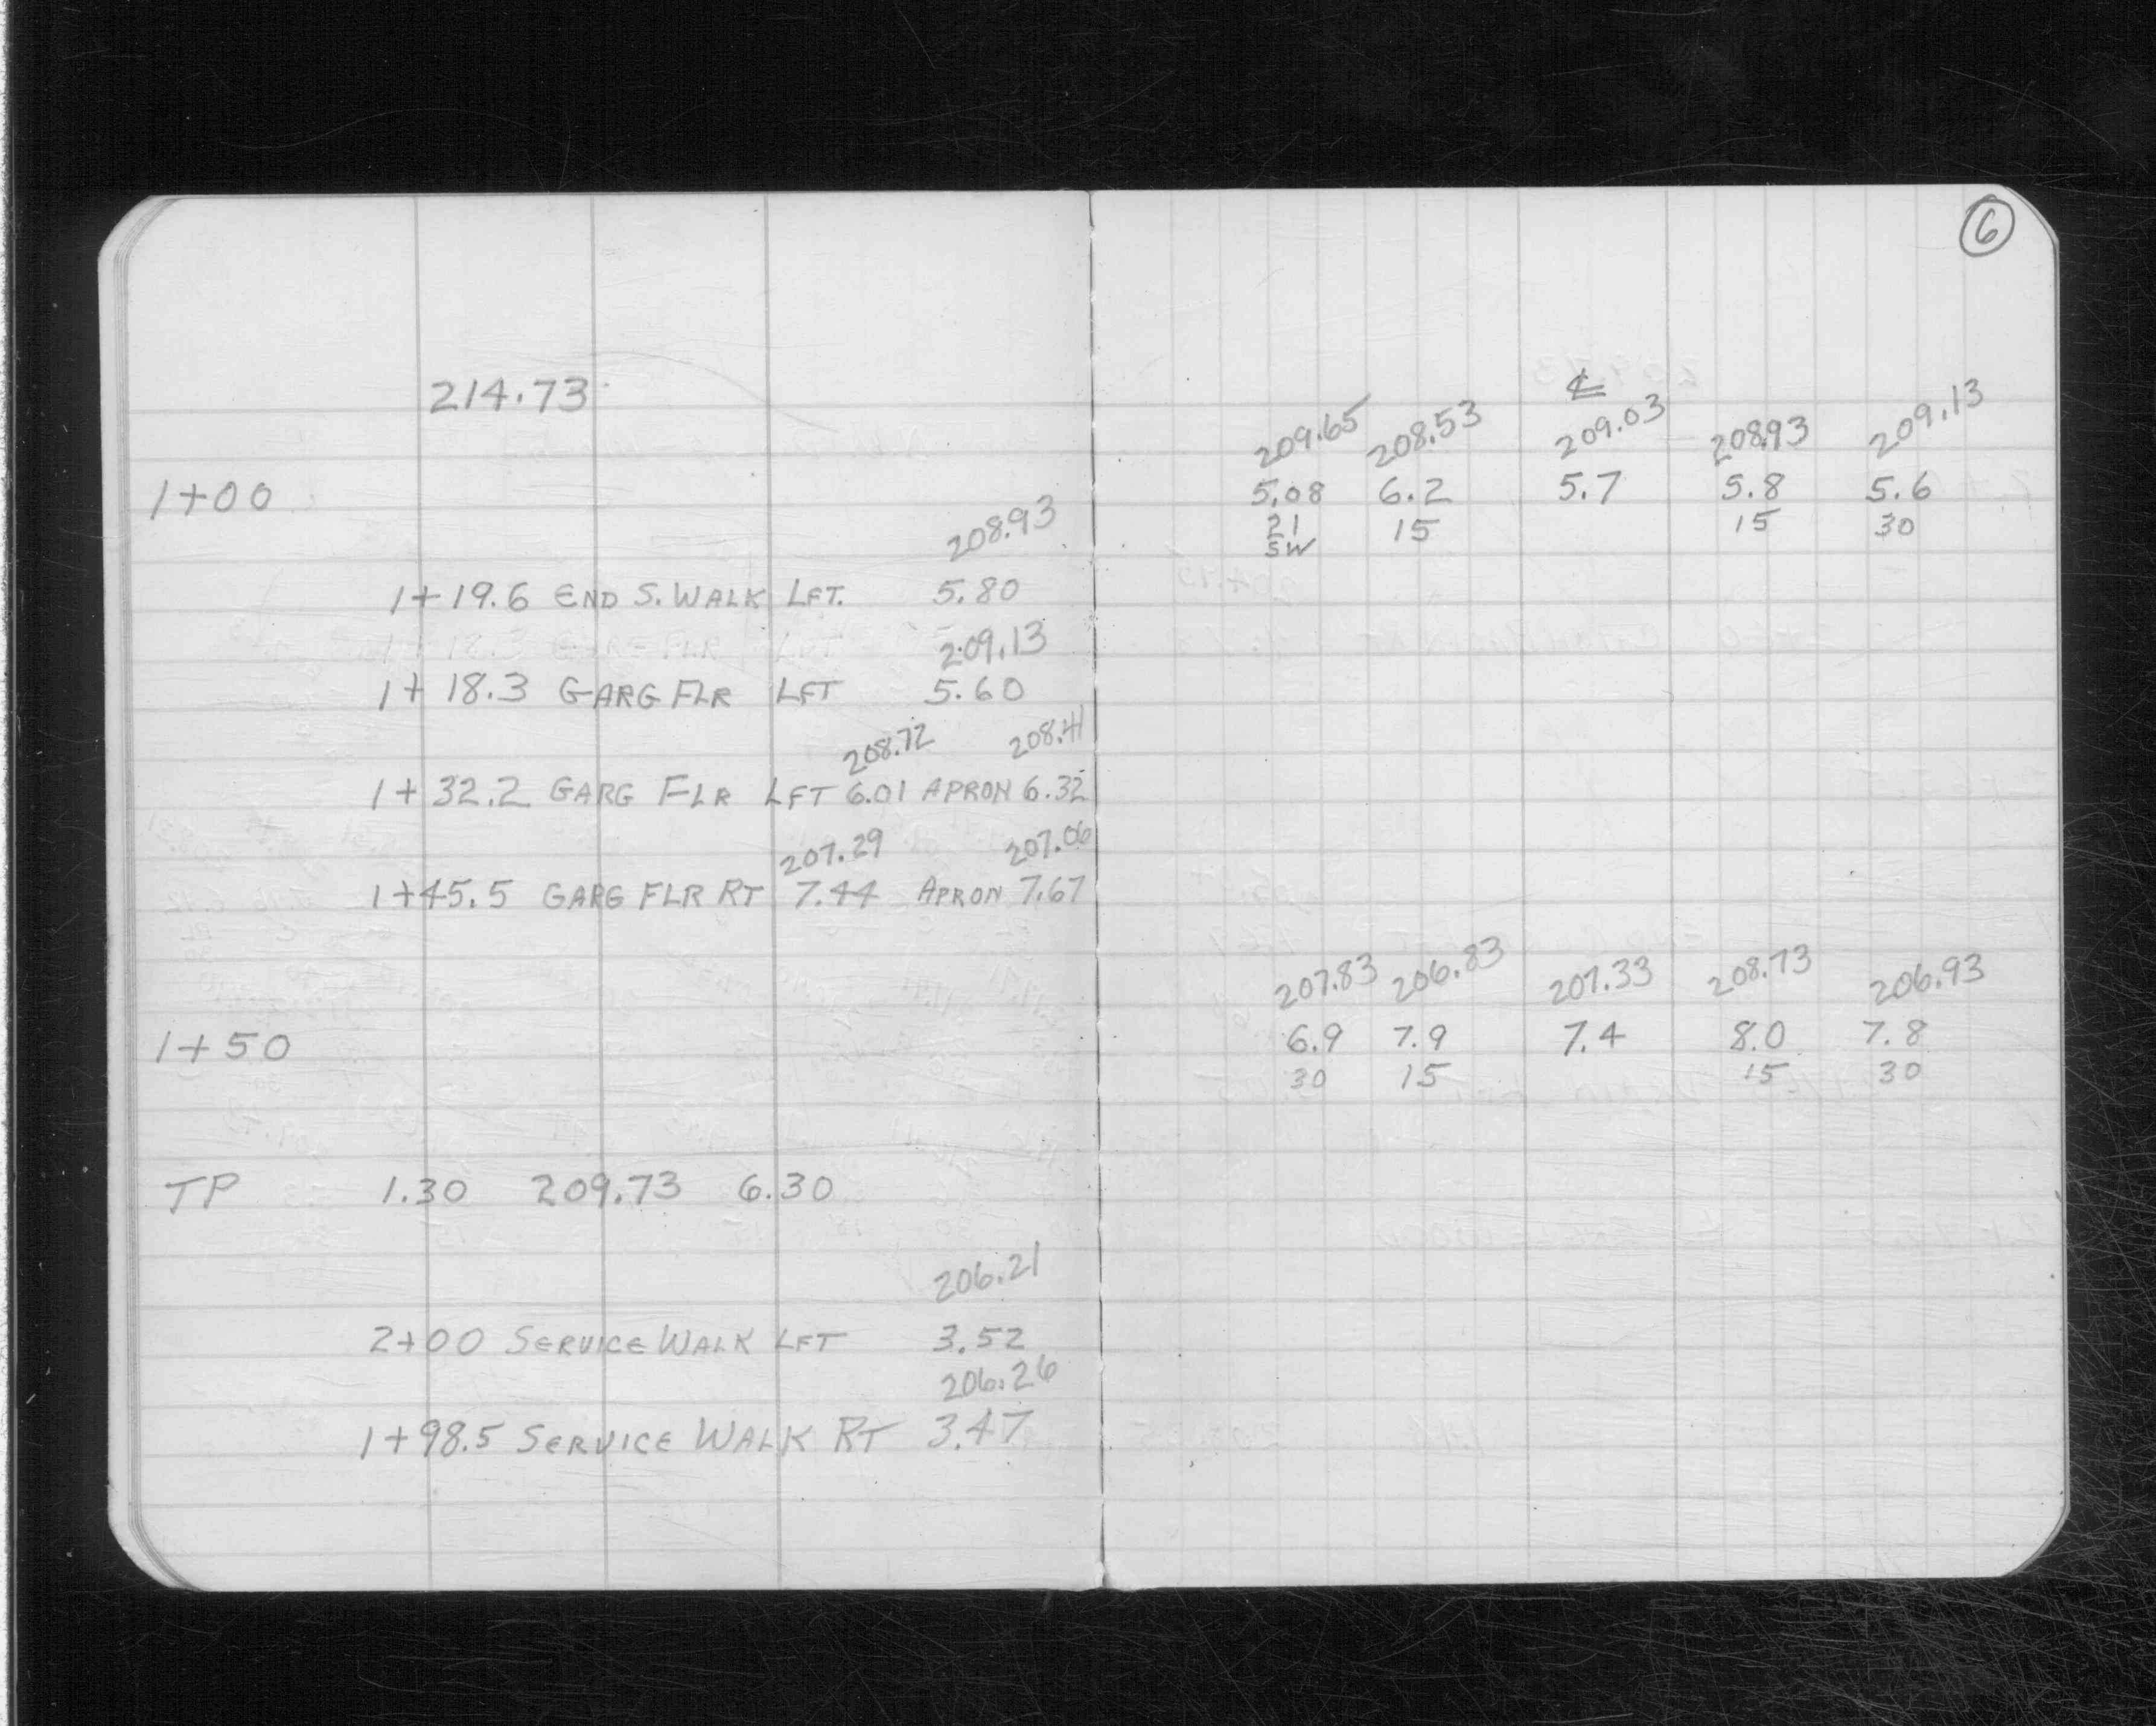 6
214.73
℄
209.65 208.53 209.03 208.93 209.13
1+00 5.08 6.2 5.7 5.8 5.6
21 15 15 30
SW
208.93
1+19.6 END S. WALK LFT. 5.80
1+18.3 GARG FLR LFT
209.13
1+18.3 GARG FLR LFT 5.60
208.72 208.41
1+32.2 GARG FLR LFT 6.01 APRON 6.32
207.29 207.06
1+45.5 GARG FLR RT 7.44 APRON 7.67
207.83 206.83 207.33 208.73 206.93
1+50 6.9 7.9 7.4 8.0 7.8
30 15 15 30
TP 1.30 209.73 6.30
206.21
2+00 SERVICE WALK LFT 3.52
206.26
1+98.5 SERVICE WALK RT 3.47